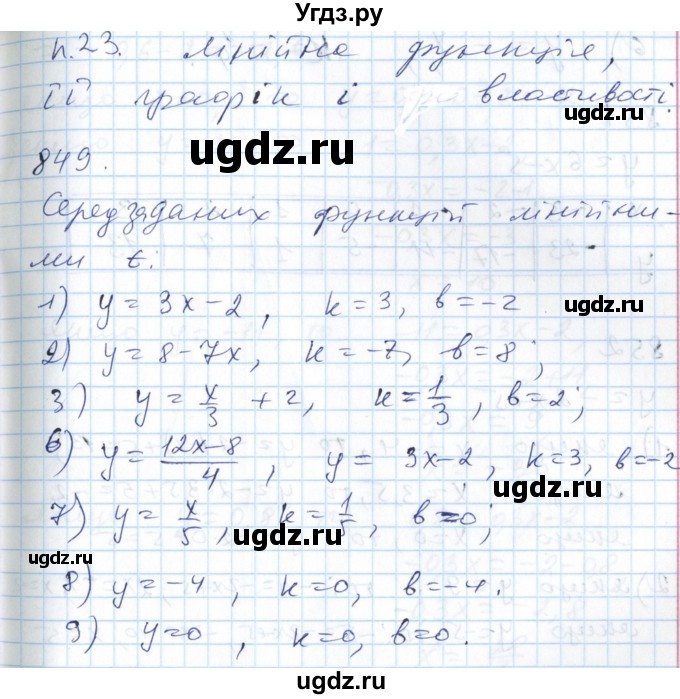 Угдз.ру
п.23. Лінійна функція,
її графік і властивості
ugdz.ru ugdz.ru
849.
Серед заданих функцій лінійни-
ми є:
1) y = 3x - 2, k = 3, b = -2
ugdz.ru ugdz.ru
2) y = 8 - 7x, k = -7, b = 8;
3) y = x/3 + 2, k = 1/3, b = 2;
6) y = (12x - 8)/4, y = 3x - 2, k = 3, b = -2
ugdz.ru
7) y = x/5, k = 1/5, b = 0;
ugdz.ru ugdz.ru
8) y = -4, k = 0, b = -4.
9) y = 0, k = 0, b = 0.
ugdz.ru ugdz.ru